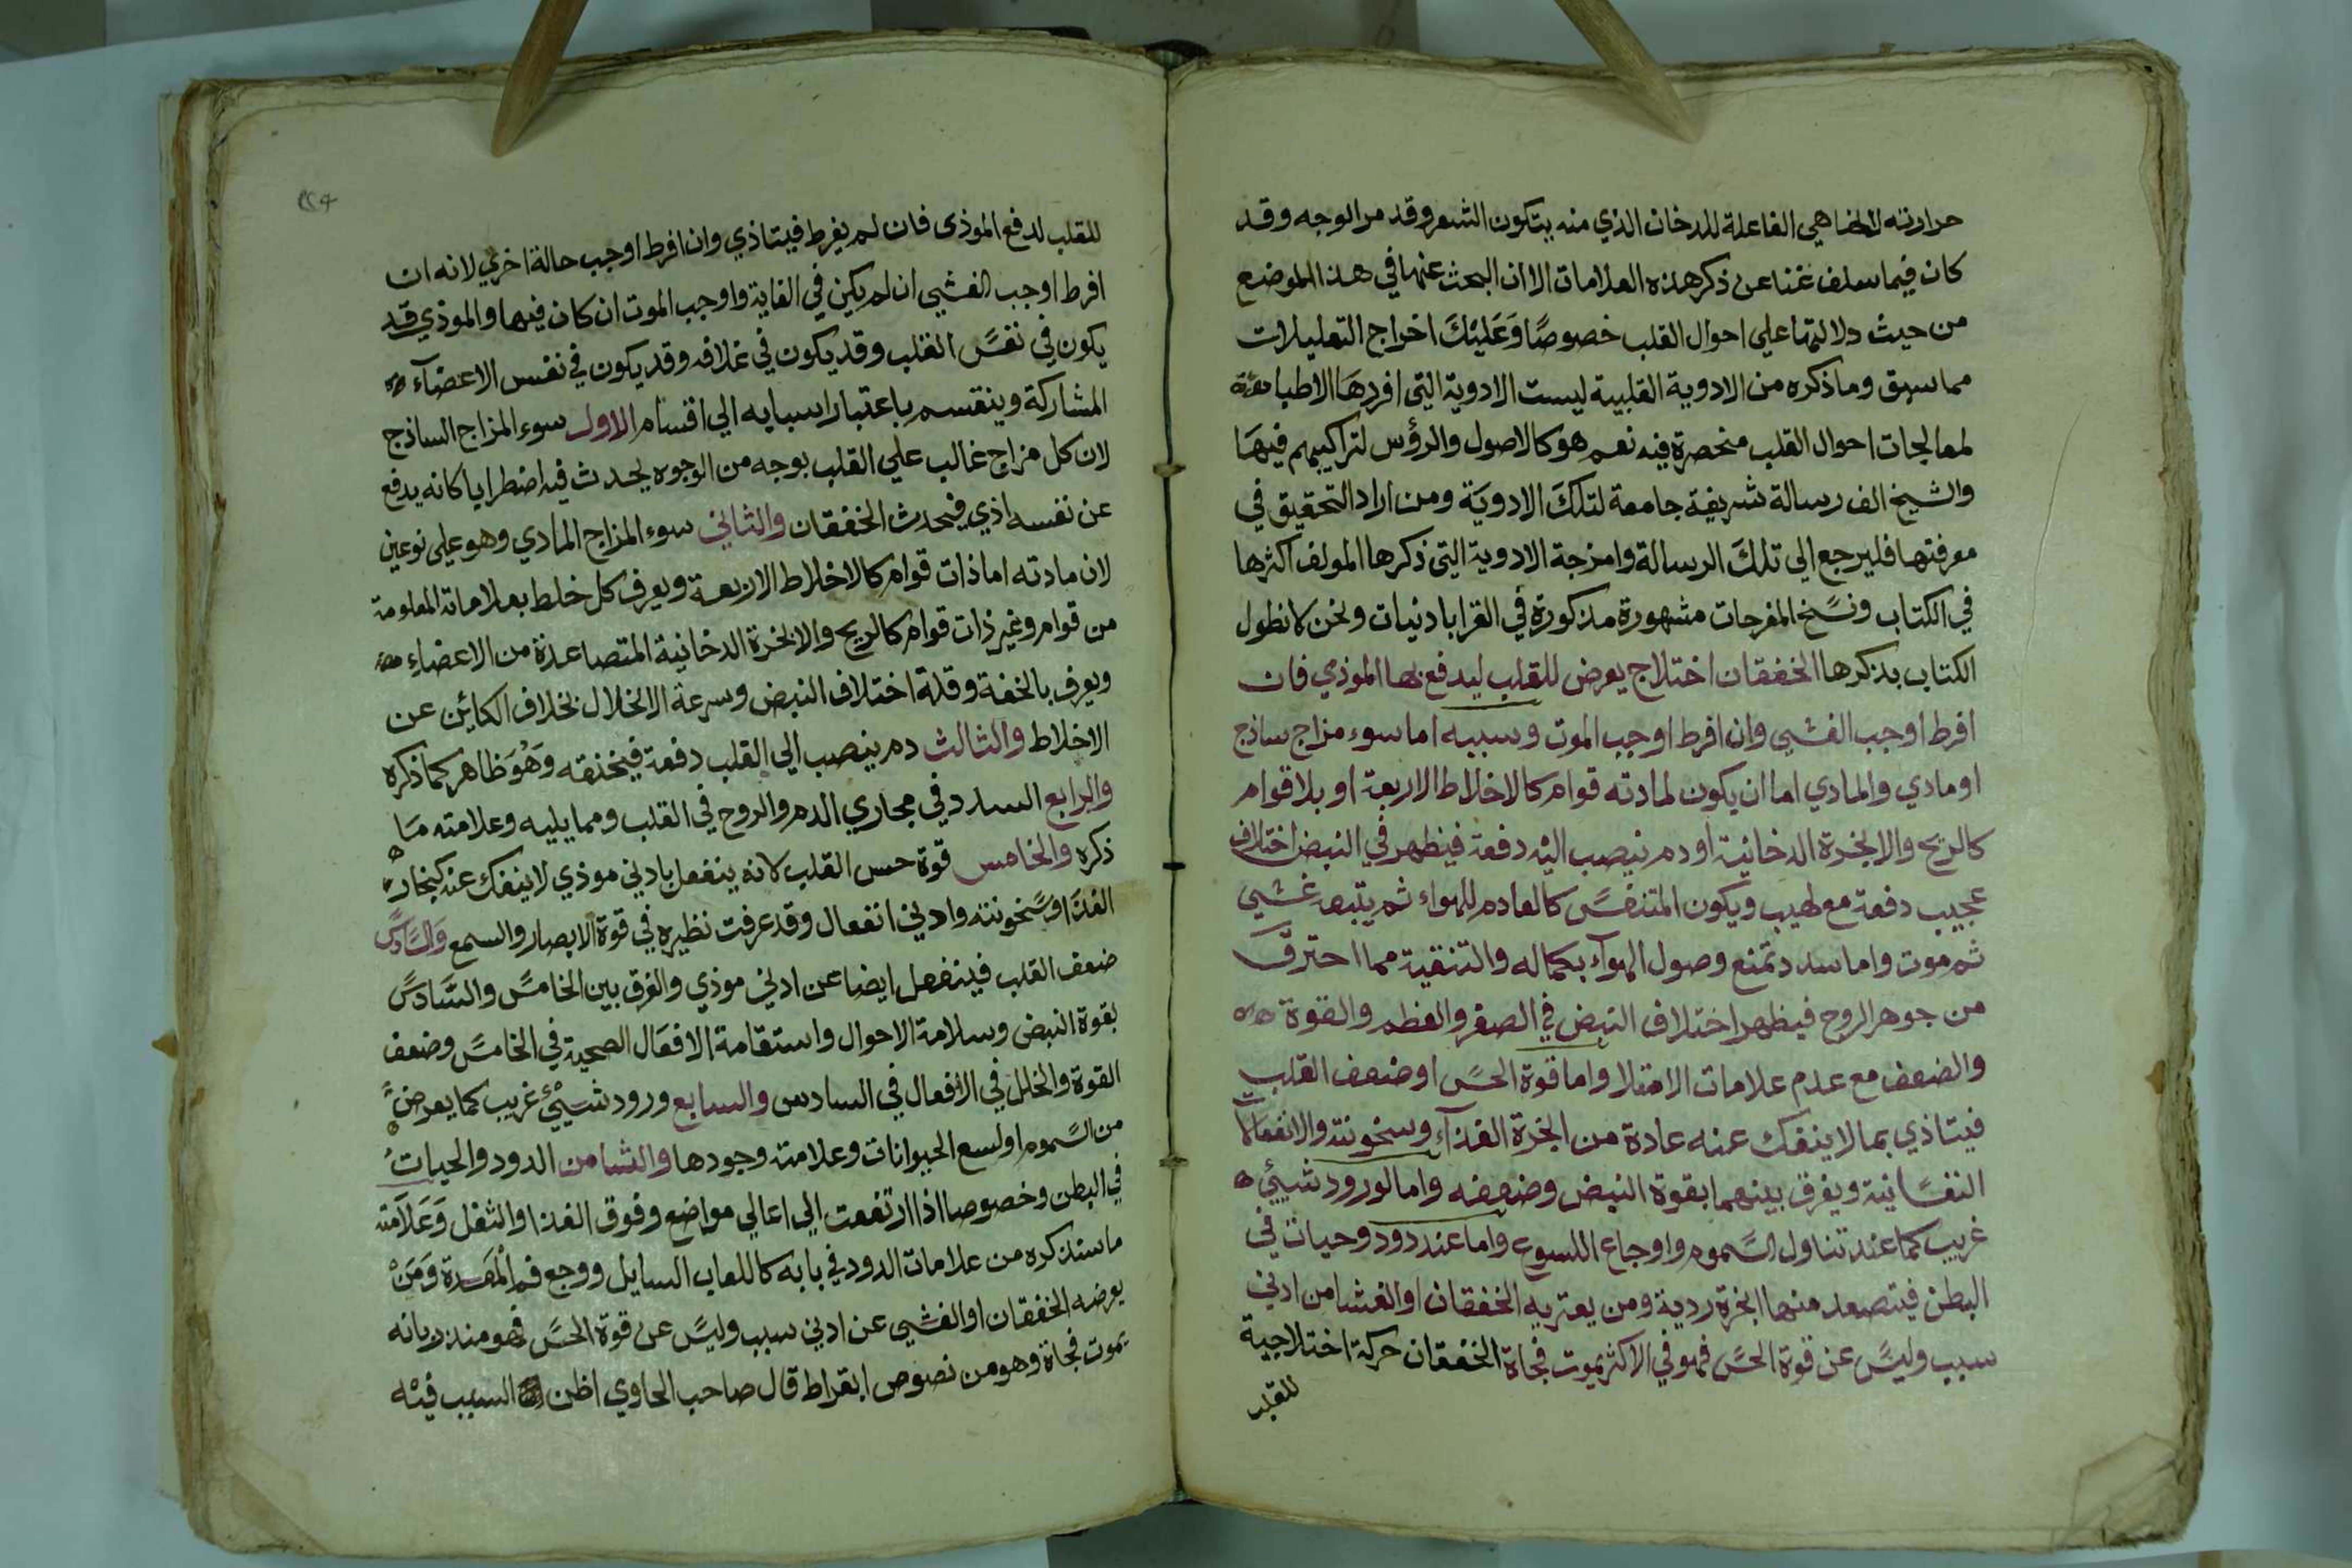 حرارته لانها هي الفاعلة للدخان الذي منه يتكون الشعر وقد مر الوجه وقد
كان فيما سلف غنا عن ذكر هذه العلامات الا ان البحث عنها في هذا الموضع
من حيث دلالتها علي احوال القلب خصوصًا وَعَليْكَ اخراج التعليلات
مما سبق وما ذكره من الادوية القلبية ليست الادوية التي افردهَا الاطبا
لمعالجات احوال القلب منحصرة فيه نعم هو كالاصول والرؤس لتراكيبهم فيهَا
والشيخ الف رسالة شريفة جامعة لتلكَ الادويَة ومن اراد التحقيق في
معرفتها فليرجع الي تلكَ الرسالة وامزجة الادوية التي ذكرها المولف اكثرها
في الكتاب ونسَخ المفرحات مشهورة مذكورة في القرابادنيات ونحن لا نطول
الكتاب بذكرها الخفقان اختلاج يعرض للقلب ليدفع بها الموذي فان
افرط اوجب الغشي وان افرط اوجب الموت وسببه اما سوء مزاج ساذج
او مادي والمادي اما ان يكون لمادته قوام كالاخلاط الاربعة او بلا قوام
كالريح والابخرة الدخانية او دم ينصب اليْه دفعة فيظهر في النبض اختلاف
عجيب دفعة مع لهيب ويكون المتنفسَ كالعادم للهواء ثم يتبعه غشي
ثم موت واما سدد تمنع وصول الهوآء بكماله والتنقية مما احترقَ
من جوهر الروح فيظهر اختلاف النبض في الصغر والعظم والقوة
والضعف مع عدم علامات الامتلا واما قوة الحسَ او ضعف القلب
فيتاذي بما لا ينفك عنه عادة من ابخرة الغذآء وسخونته والانفعالات
النفسَانية ويفرق بينهما بقوة النبض وضعفه واما لورود شييْ
غريب كما عند تناول السَموم واوجاع اللسوع واما عند دود وحيات في
البطن فيتصعد منها ابخرة ردية ومن يعتريه الخفقان او الغشا من ادني
سبب وليسَ عن قوة الحسَ فهو في الاكثر يموت فجاة الخفقان حركة اختلاجية
للقلب
للقلب لدفع الموذي فان لم يفرط فيتاذي وان افرط اوجب حالة اخري لانه ان
افرط اوجب الغشي ان لم يكن في الغاية واوجب الموت ان كان فيها والموذي قد
يكون في نفسَ القلب وقد يكون في غلافه وقد يكون في نفس الاعضآء
المشاركة وينقسم باعتبار اسبابه الي اقسام الاول سوء المزاج الساذج
لان كل مزاج غالب علي القلب بوجه من الوجوه يحدث فيه اضطرابا كانه يدفع
عن نفسه اذي فيحدث الخفقان والثاني سوء المزاج المادي وهو علي نوعين
لان مادته اما ذات قوام كالاخلاط الاربعة ويعرف كل خلط بعلاماته المعلومة
من قوام وغير ذات قوام كالريح والابخرة الدخانية المتصاعدة من الاعضاء
ويعرف بالخفة وقلة اختلاف النبض وسرعة الانحلال بخلاف الكائن عن
الاخلاط والثالث دم ينصب الي القلب دفعة فيخنقه وَهُوَ ظاهر كما ذكره
والرابع السدد في مجاري الدم والروح في القلب ومما يليه وعلامته مَا
ذكره والخامس قوة حس القلب لانه ينفعل بادني موذي لا ينفك عنه كبخار
الغذا وسَخونته وادني انفعال وقد عرفت نظيره في قوة الابصار والسمع وَالسَادسَ
ضعف القلب فينفعل ايضا عن ادني موذي والفرق بين الخامسَ والسَادسَ
بقوة النبض وسلامة الاحوال واستقامة الافعَال الصحية في الخامسَ وضعف
القوة والخلل في الافعال في السادس والسابع ورود شييْ غريب كما يعرض
من السَموم او لسع الحيوانات وعلامته وجودها والثامن الدود والحيات
في البطن وخصوصا اذا ارتفعت الي اعالي مواضع وفوق الغذا والثفل وَعَلاَمته
ما سنذكره من علامات الدود في بابه كاللعاب السايل ووجع فم الْمَعدة وَمَنْ
يعرضه الخفقان او الغشي عن ادني سبب وليسَ عن قوة الحسَ فهو منذر بانه
يموت فجاة وهو من نصوص ابقراط قال صاحب الحاوي اظن السبب فيْه